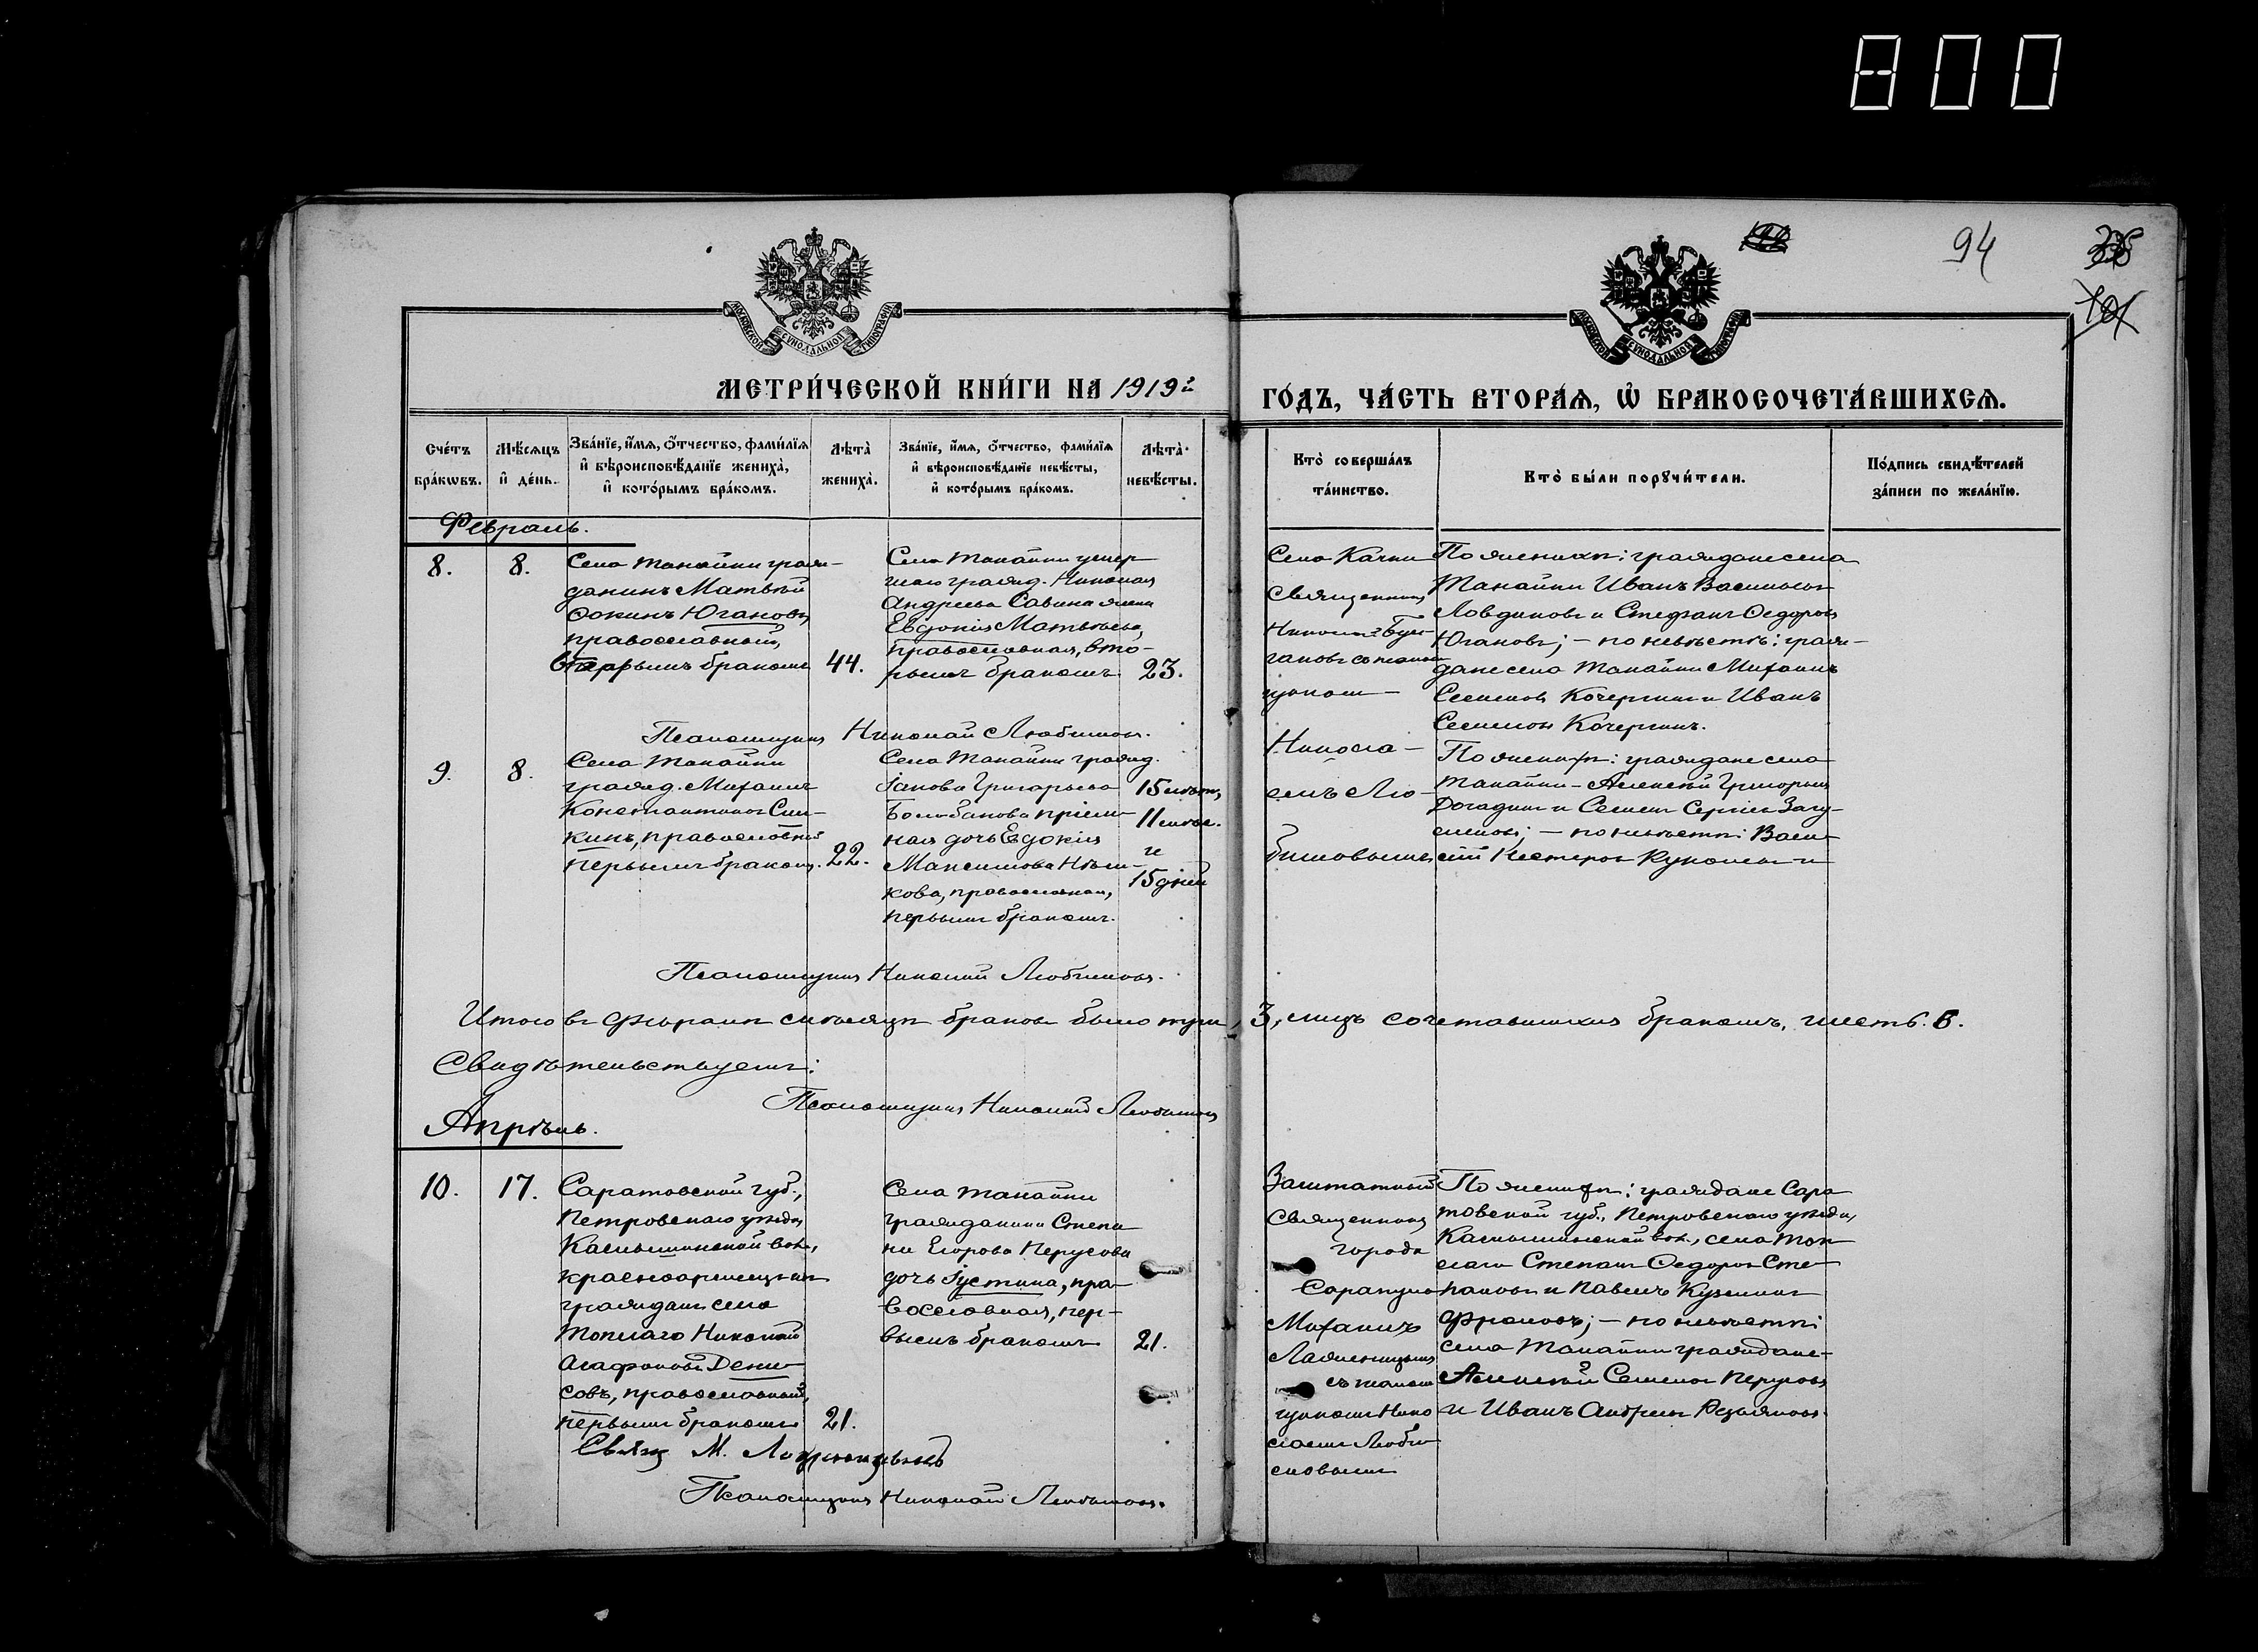 800
94
МОСКОВСКОЙ СѴНОДАЛЬНОЙ ТИПОГРАФІИ
МОСКОВСКОЙ СѴНОДАЛЬНОЙ ТИПОГРАФІИ
МЕТРИ́ЧЕСКОЙ КНИ́ГИ НА 1919й
ГО́ДЪ, ЧА́СТЬ ВТОРА́Ѧ, Ѽ БРАКОСОЧЕТА́ВШИХСѦ.
Сче́тъ
бра́кѡвъ.
Мѣ́сѧцъ
и҆ де́нь.
Зва́нїе, и҆́мѧ, ѻ҆́тчество, фами́лїѧ
и҆ вѣроисповѣ́данїе жениха̀,
и҆ кото́рымъ бра́комъ.
Лѣта̀
жениха̀.
Зва́нїе, и҆́мѧ, ѻ҆́тчество, фами́лїѧ
и҆ вѣроисповѣ́данїе невѣ́сты,
и҆ кото́рымъ бра́комъ.
Лѣта̀
невѣ́сты.
Кто̀ соверша́лъ
та́инство.
Кто̀ бы́ли порꙋчи́тели.
По́дпись свидѣ́телей
за́писи по жела́нїю.
Февраль.
8.
8.
Села Танайки граж-
данинъ Матвѣй
Фокинъ Югановъ,
православный,
вторымъ бракомъ
44.
Села Танайки умер-
шаго гражд. Николая
Андреева Савина жена
Евдокія Матвѣева,
православная, вто-
рымъ бракомъ
23.
Села Качки
Священникъ
Николай
Псаломщикъ Николай Любимовъ.
По женихѣ: граждане села
Танайки Иванъ Васильевъ
Ловдиковъ и Стефанъ Федоровъ
Югановъ; — по невѣстѣ: граж-
дане села Танайки Михаилъ
Семеновъ Кочергинъ и Иванъ
Семеновъ Кочергинъ.
9.
8.
Села Танайки
гражд. Михаилъ
Константиновъ Син-
кинъ, православный
первымъ бракомъ.
22.
Села Танайки гражд.
Іакова Григорьева
Болобанова пріем-
ная дочь Евдокія
Максимова
кова, православная,
первымъ бракомъ.
15 лѣтъ,
11 мѣс.
и
15 дней
Никола-
емъ Лю-
бимовымъ
По женихѣ: граждане села
Танайки — Алексѣй Григорьевъ
Догадинъ и Семенъ Сергѣевъ
по невѣстѣ: Васи-
лій Нестеровъ и
Псаломщикъ Николай Любимовъ.
Итого въ Февралѣ мѣсяцѣ браковъ было три, 3, лицъ сочетавшихся бракомъ, шесть. 6.
Свидѣтельствуемъ:
Псаломщикъ Николай Любимовъ
Апрѣль.
10.
17.
Саратовской губ.,
Петровскаго уѣзда,
Камышинской вол.,
красноармеецъ
гражданинъ села
Топлаго Николай
Агафоновъ Дени-
совъ, православный,
первымъ бракомъ
21.
Села Танайки
гражданина Степа-
на Егорова Перусова
дочь Іустина, пра-
вославная, пер-
вымъ бракомъ
21.
Заштатный
Священникъ
города
Сарапула
Михаилъ
съ псалом-
щикомъ Нико-
лаемъ Люби-
мовымъ
По женихѣ: граждане Сара-
товской губ., Петровскаго уѣзда,
Камышинской вол., села Топ-
лаго Степанъ Федоровъ Сте-
пановъ и Павелъ Кузьминъ
Фроловъ; — по невѣстѣ:
села Танайки граждане —
Алексѣй Семеновъ Перусовъ
и Иванъ Андреевъ
Свящ М.
Псаломщикъ Николай Любимовъ.